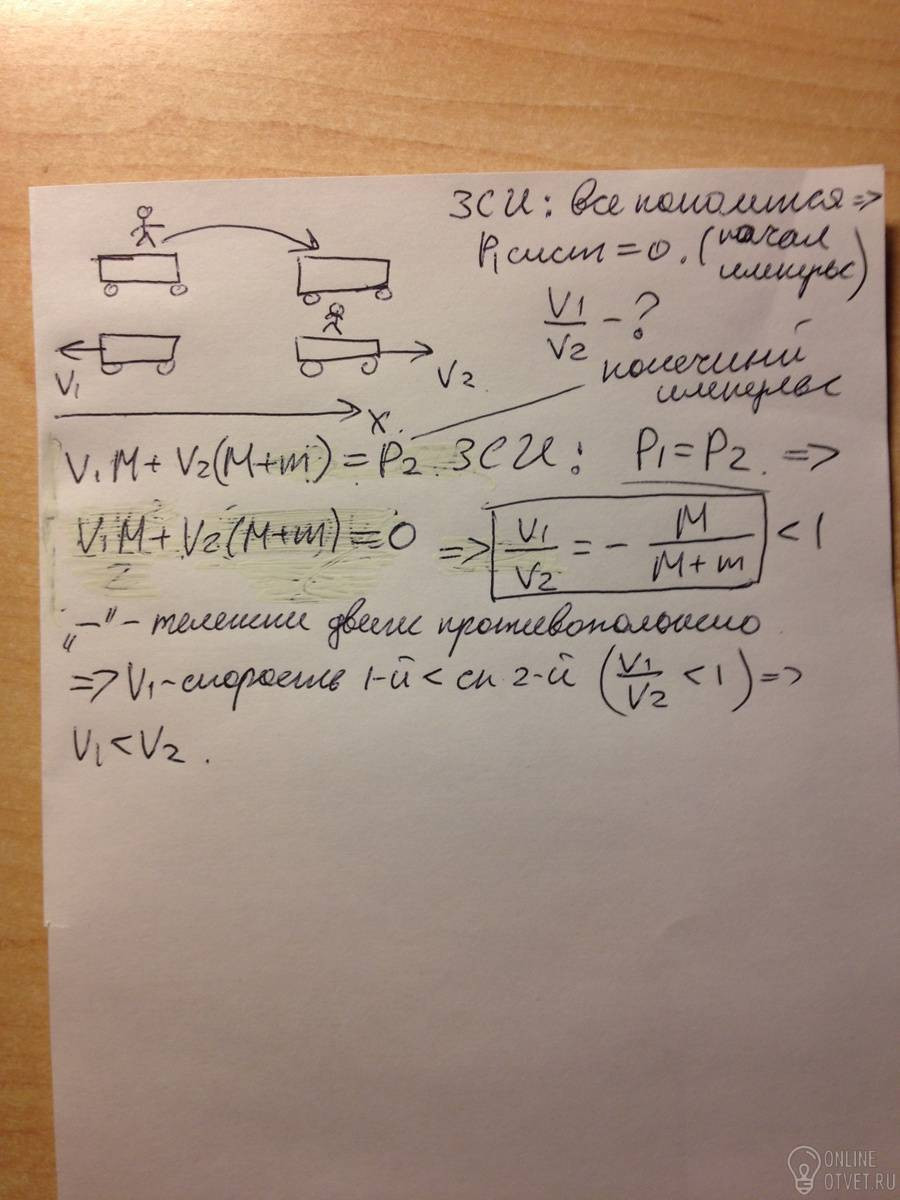 ЗСИ: Все покоится =>
P₁ сист = 0. (начал
импульс)
V₁/V₂ - ?
конечный
импульс
V₁
V₂
X
V₁M + V₂(M+m) = P₂ ЗСИ: P₁=P₂ =>
V₁M + V₂(M+m) = 0 => V₁/V₂ = - M/(M+m) < 1
"-" - тележки движ противоположно
=> V₁-скорость 1-й < ск 2-й (V₁/V₂ < 1) =>
V₁<V₂.
ONLINE
OTVET.RU